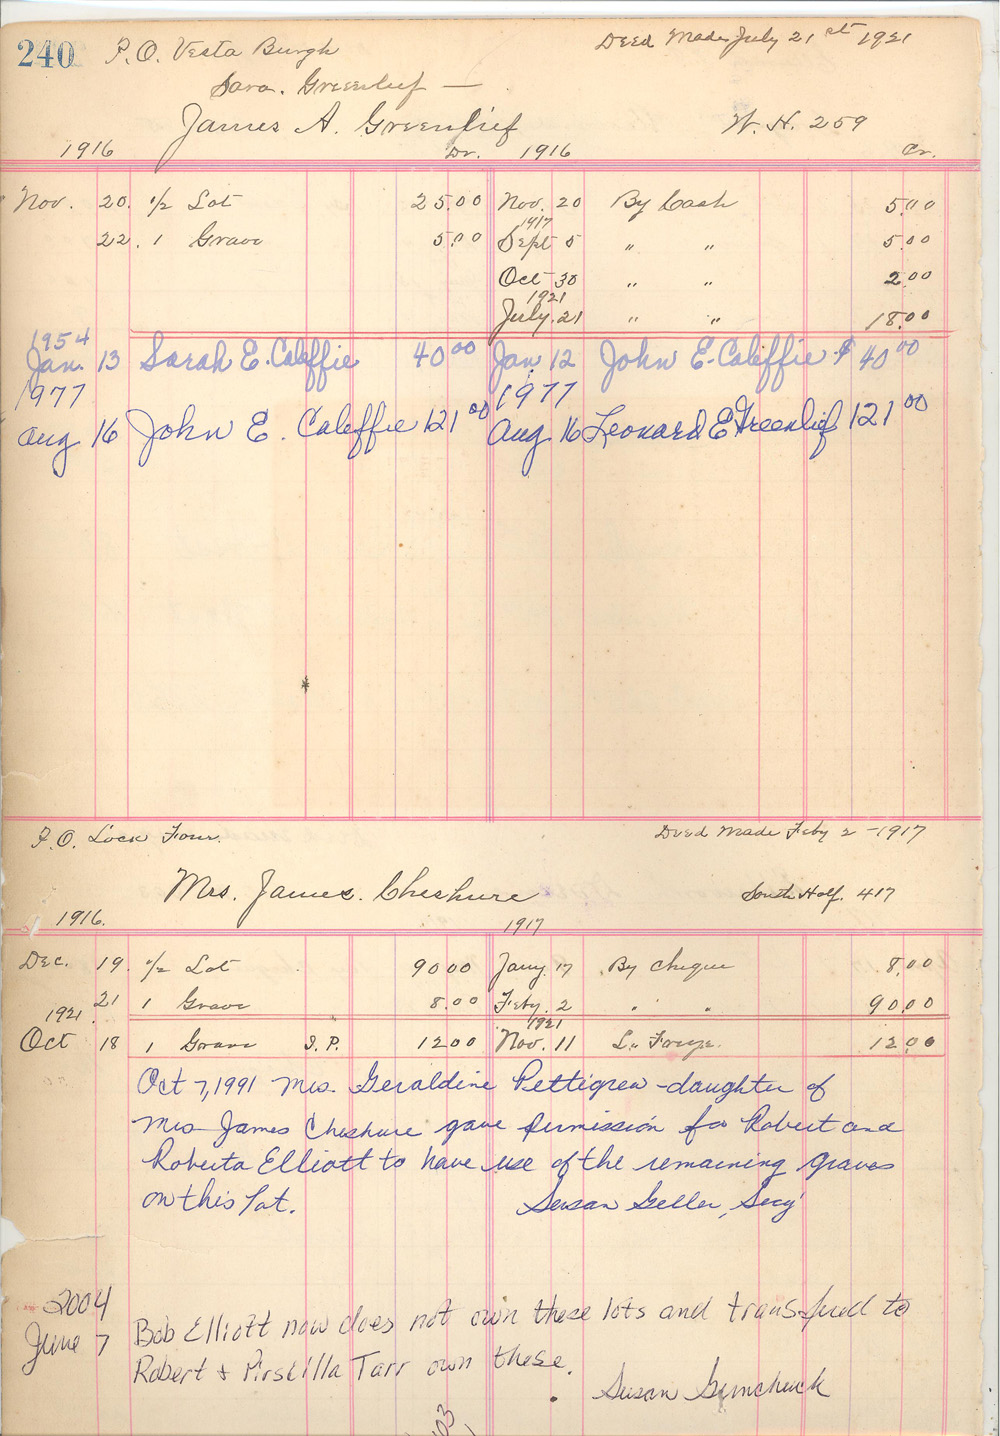 240 P.O. Vesta Burgh Deed Made July 21st 1921
Sara. Greenlief —
James A. Greenlief W. H. 259
1916 Dr. 1916 Cr.
Nov. 20. 1/2 Lot 25.00 Nov. 20 By Cash 5.00
1917
22. 1 Grave 5.00 Sept 5 " " 5.00
Oct 30 " " 2.00
1921
July. 21 " " 18.00
1954
Jan. 13 Sarah E. Caleffie 40 00 Jan. 12 John E. Caleffie $ 40 00
1977 1977
Aug 16 John E. Caleffie 121 00 Aug 16 Leonard E Greenlief 121 00
P.O. Lock Four. Deed Made Feby 2 - 1917
Mrs. James. Cheshure South Half. 417
1916. 1917
Dec. 19. 1/2 Lot 90 00 Jany. 17 By Cheque 8.00
21 1 Grave 8.00 Feby. 2 " " 90.00
1921 1921
Oct 18 1 Grave S.P. 12 00 Nov. 11 12.00
Oct 7, 1991 Mrs. Geraldine Pettigrew - daughter of
Mrs James Cheshure gave permission for Robert and
Roberta Elliott to have use of the remaining graves
on this lot. Susan Geller, Secy
2004
June 7 Bob Elliott now does not own these lots and transfured to
Robert & Pirscilla Tarr own these.
Susan Gumchuck
03